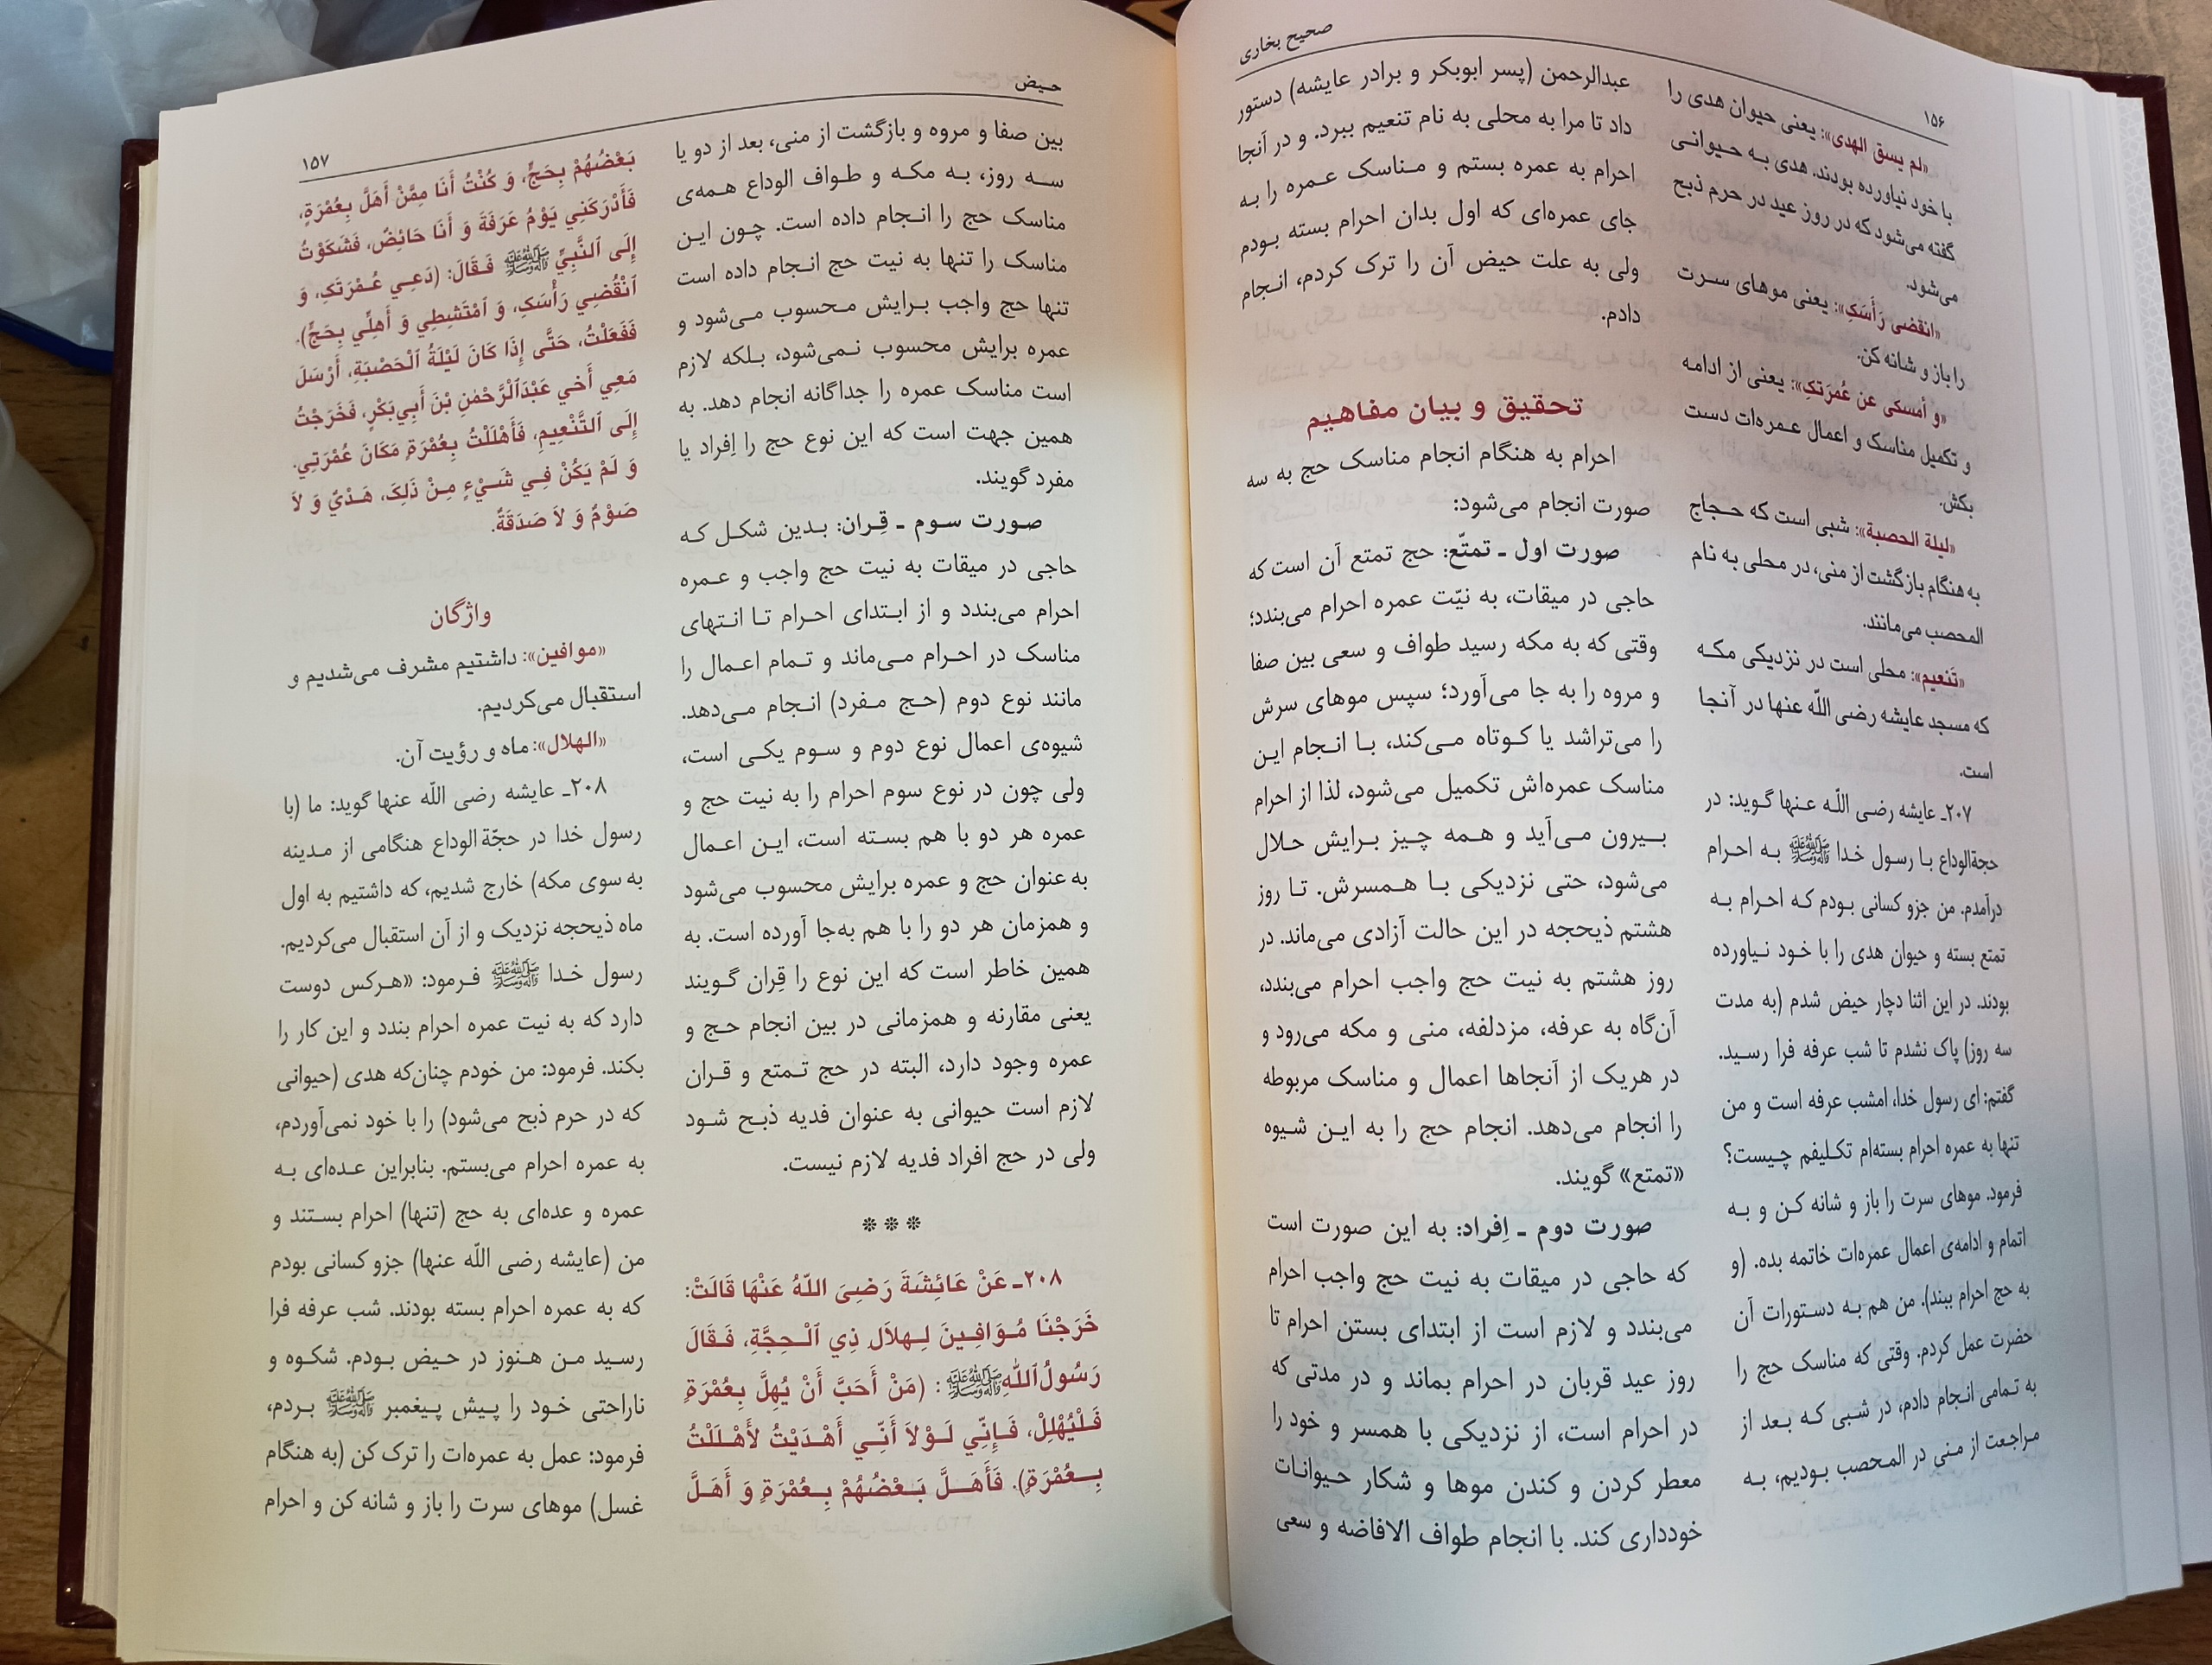 صحیح بخاری
۱۵۶
«لم یسق الهدی»: یعنی حیوان هدی را
با خود نیاورده بودند. هدی به حیوانی
گفته می‌شود که در روز عید در حرم ذبح
می‌شود.
«انقضی رَأسَکِ»: یعنی موهای سرت
را باز و شانه کن.
«و أمسکی عن عُمرَتکِ»: یعنی از ادامه
و تکمیل مناسک و اعمال عمره‌ات دست
بکش.
«لیلة الحصبة»: شبی است که حجاج
به هنگام بازگشت از منی، در محلی به نام
المحصب می‌مانند.
«تَنعیم»: محلی است در نزدیکی مکه
که مسجد عایشه رضی اللّه عنها در آنجا
است.
۲۰۷ـ عایشه رضی اللّه عنها گوید: در
حجةالوداع با رسول خدا ﷺ به احرام
درآمدم. من جزو کسانی بودم که احرام به
تمتع بسته و حیوان هدی را با خود نیاورده
بودند. در این اثنا دچار حیض شدم (به مدت
سه روز) پاک نشدم تا شب عرفه فرا رسید.
گفتم: ای رسول خدا، امشب عرفه است و من
تنها به عمره احرام بسته‌ام تکلیفم چیست؟
فرمود. موهای سرت را باز و شانه کن و به
اتمام و ادامه‌ی اعمال عمره‌ات خاتمه بده. (و
به حج احرام ببند). من هم به دستورات آن
حضرت عمل کردم. وقتی که مناسک حج را
به تمامی انجام دادم، در شبی که بعد از
مراجعت از منی در المحصب بودیم، به
عبدالرحمن (پسر ابوبکر و برادر عایشه) دستور
داد تا مرا به محلی به نام تنعیم ببرد. و در آنجا
احرام به عمره بستم و مناسک عمره را به
جای عمره‌ای که اول بدان احرام بسته بودم
ولی به علت حیض آن را ترک کردم، انجام
دادم.
تحقیق و بیان مفاهیم
احرام به هنگام انجام مناسک حج به سه
صورت انجام می‌شود:
صورت اول ـ تمتّع: حج تمتع آن است که
حاجی در میقات، به نیّت عمره احرام می‌بندد؛
وقتی که به مکه رسید طواف و سعی بین صفا
و مروه را به جا می‌آورد؛ سپس موهای سرش
را می‌تراشد یا کوتاه می‌کند، با انجام این
مناسک عمره‌اش تکمیل می‌شود، لذا از احرام
بیرون می‌آید و همه چیز برایش حلال
می‌شود، حتی نزدیکی با همسرش. تا روز
هشتم ذیحجه در این حالت آزادی می‌ماند. در
روز هشتم به نیت حج واجب احرام می‌بندد،
آن‌گاه به عرفه، مزدلفه، منی و مکه می‌رود و
در هریک از آنجاها اعمال و مناسک مربوطه
را انجام می‌دهد. انجام حج را به این شیوه
«تمتع» گویند.
صورت دوم ـ اِفراد: به این صورت است
که حاجی در میقات به نیت حج واجب احرام
می‌بندد و لازم است از ابتدای بستن احرام تا
روز عید قربان در احرام بماند و در مدتی که
در احرام است، از نزدیکی با همسر و خود را
معطر کردن و کندن موها و شکار حیوانات
خودداری کند. با انجام طواف الافاضه و سعی
حیض
۱۵۷
بین صفا و مروه و بازگشت از منی، بعد از دو یا
سه روز، به مکه و طواف الوداع همه‌ی
مناسک حج را انجام داده است. چون این
مناسک را تنها به نیت حج انجام داده است
تنها حج واجب برایش محسوب می‌شود و
عمره برایش محسوب نمی‌شود، بلکه لازم
است مناسک عمره را جداگانه انجام دهد. به
همین جهت است که این نوع حج را اِفراد یا
مفرد گویند.
صورت سوم ـ قِران: بدین شکل که
حاجی در میقات به نیت حج واجب و عمره
احرام می‌بندد و از ابتدای احرام تا انتهای
مناسک در احرام می‌ماند و تمام اعمال را
مانند نوع دوم (حج مفرد) انجام می‌دهد.
شیوه‌ی اعمال نوع دوم و سوم یکی است،
ولی چون در نوع سوم احرام را به نیت حج و
عمره هر دو با هم بسته است، این اعمال
به عنوان حج و عمره برایش محسوب می‌شود
و همزمان هر دو را با هم به‌جا آورده است. به
همین خاطر است که این نوع را قِران گویند
یعنی مقارنه و همزمانی در بین انجام حج و
عمره وجود دارد، البته در حج تمتع و قران
لازم است حیوانی به عنوان فدیه ذبح شود
ولی در حج افراد فدیه لازم نیست.
***
۲۰۸ـ عَنْ عَائِشَةَ رَضِیَ اللّهُ عَنْهَا قَالَتْ:
خَرَجْنَا مُوَافِینَ لِهلاَلِ ذِي ٱلْحِجَّةِ، فَقَالَ
رَسُولُ ٱللهِ ﷺ : (مَنْ أَحَبَّ أَنْ یُهِلَّ بِعُمْرَةٍ
فَلْیُهْلِلْ، فَإِنِّي لَوْلاَ أَنِّي أَهْدَیْتُ لَأَهْلَلْتُ
بِعُمْرَةٍ). فَأَهَلَّ بَعْضُهُمْ بِعُمْرَةٍ وَ أَهَلَّ
بَعْضُهُمْ بِحَجٍّ، وَ كُنْتُ أَنَا مِمَّنْ أَهَلَّ بِعُمْرَةٍ،
فَأَدْرَكَنِي يَوْمُ عَرَفَةَ وَ أَنَا حَائِضٌ، فَشَكَوْتُ
إِلَى ٱلنَّبِيِّ ﷺ فَقَالَ: (دَعِي عُمْرَتَكِ، وَ
ٱنْقُضِي رَأْسَكِ، وَ ٱمْتَشِطِي وَ أَهِلِّي بِحَجٍّ).
فَفَعَلْتُ، حَتَّى إِذَا كَانَ لَيْلَةُ ٱلْحَصْبَةِ، أَرْسَلَ
مَعِي أَخي عَبْدَٱلْرَّحْمٰنِ بْنَ أَبِي‌بَكْرٍ، فَخَرَجْتُ
إِلَى ٱلتَّنْعِيمِ، فَأَهْلَلْتُ بِعُمْرَةٍ مَكَانَ عُمْرَتِي.
وَ لَمْ يَكُنْ فِي شَيْءٍ مِنْ ذَلِكَ، هَدْيٌ وَ لاَ
صَوْمٌ وَ لاَ صَدَقَةٌ.
واژگان
«موافین»: داشتیم مشرف می‌شدیم و
استقبال می‌کردیم.
«الهلال»: ماه و رؤیت آن.
۲۰۸ـ عایشه رضی اللّه عنها گوید: ما (با
رسول خدا در حجّة الوداع هنگامی از مدینه
به سوی مکه) خارج شدیم، که داشتیم به اول
ماه ذیحجه نزدیک و از آن استقبال می‌کردیم.
رسول خدا ﷺ فرمود: «هرکس دوست
دارد که به نیت عمره احرام بندد و این کار را
بکند. فرمود: من خودم چنان‌که هدی (حیوانی
که در حرم ذبح می‌شود) را با خود نمی‌آوردم،
به عمره احرام می‌بستم. بنابراین عده‌ای به
عمره و عده‌ای به حج (تنها) احرام بستند و
من (عایشه رضی اللّه عنها) جزو کسانی بودم
که به عمره احرام بسته بودند. شب عرفه فرا
رسید من هنوز در حیض بودم. شکوه و
ناراحتی خود را پیش پیغمبر ﷺ بردم،
فرمود: عمل به عمره‌ات را ترک کن (به هنگام
غسل) موهای سرت را باز و شانه کن و احرام